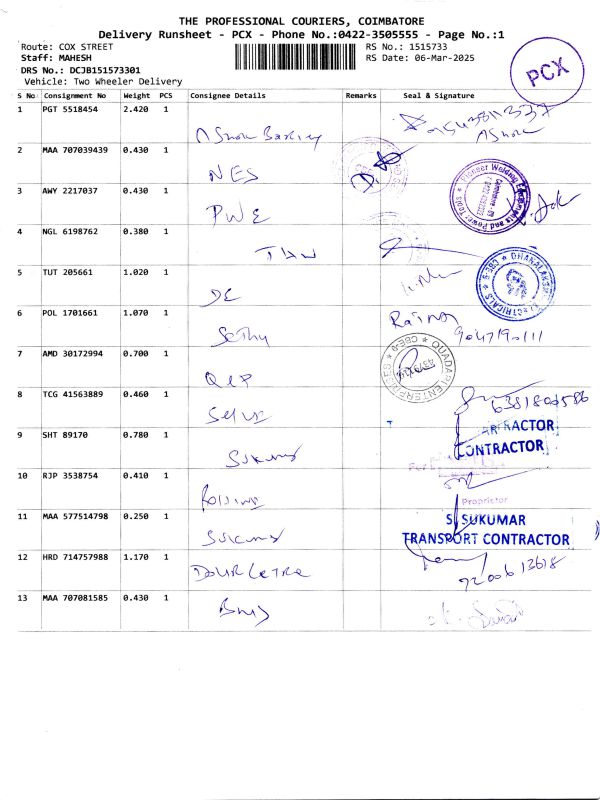 THE PROFESSIONAL COURIERS, COIMBATORE
Delivery Runsheet - PCX - Phone No.:0422-3505555 - Page No.:1
Route: COX STREET
RS No.: 1515733
Staff: MAHESH
RS Date: 06-Mar-2025
DRS No.: DCJB151573301
Vehicle: Two Wheeler Delivery
PCX
S No Consignment No Weight PCS Consignee Details Remarks Seal & Signature
1 PGT 5518454 2.420 1
2 MAA 707039439 0.430 1 NES
3 AWY 2217037 0.430 1 PWE
Pioneer Welding
and Power Tools
4 NGL 6198762 0.380 1
5 TUT 205661 1.020 1 DE
DHANALAKSHMI ELECTRICALS
6 POL 1701661 1.070 1 Sethu
9047190111
7 AMD 30172994 0.700 1 QEP
QUADAPI ENTERPRISES CBE-9
8 TCG 41563889 0.460 1
6381806586
CONTRACTOR
9 SHT 89170 0.780 1
10 RJP 3538754 0.410 1
Proprietor
11 MAA 577514798 0.250 1
S. SUKUMAR
TRANSPORT CONTRACTOR
12 HRD 714757988 1.170 1
9200613618
13 MAA 707081585 0.430 1